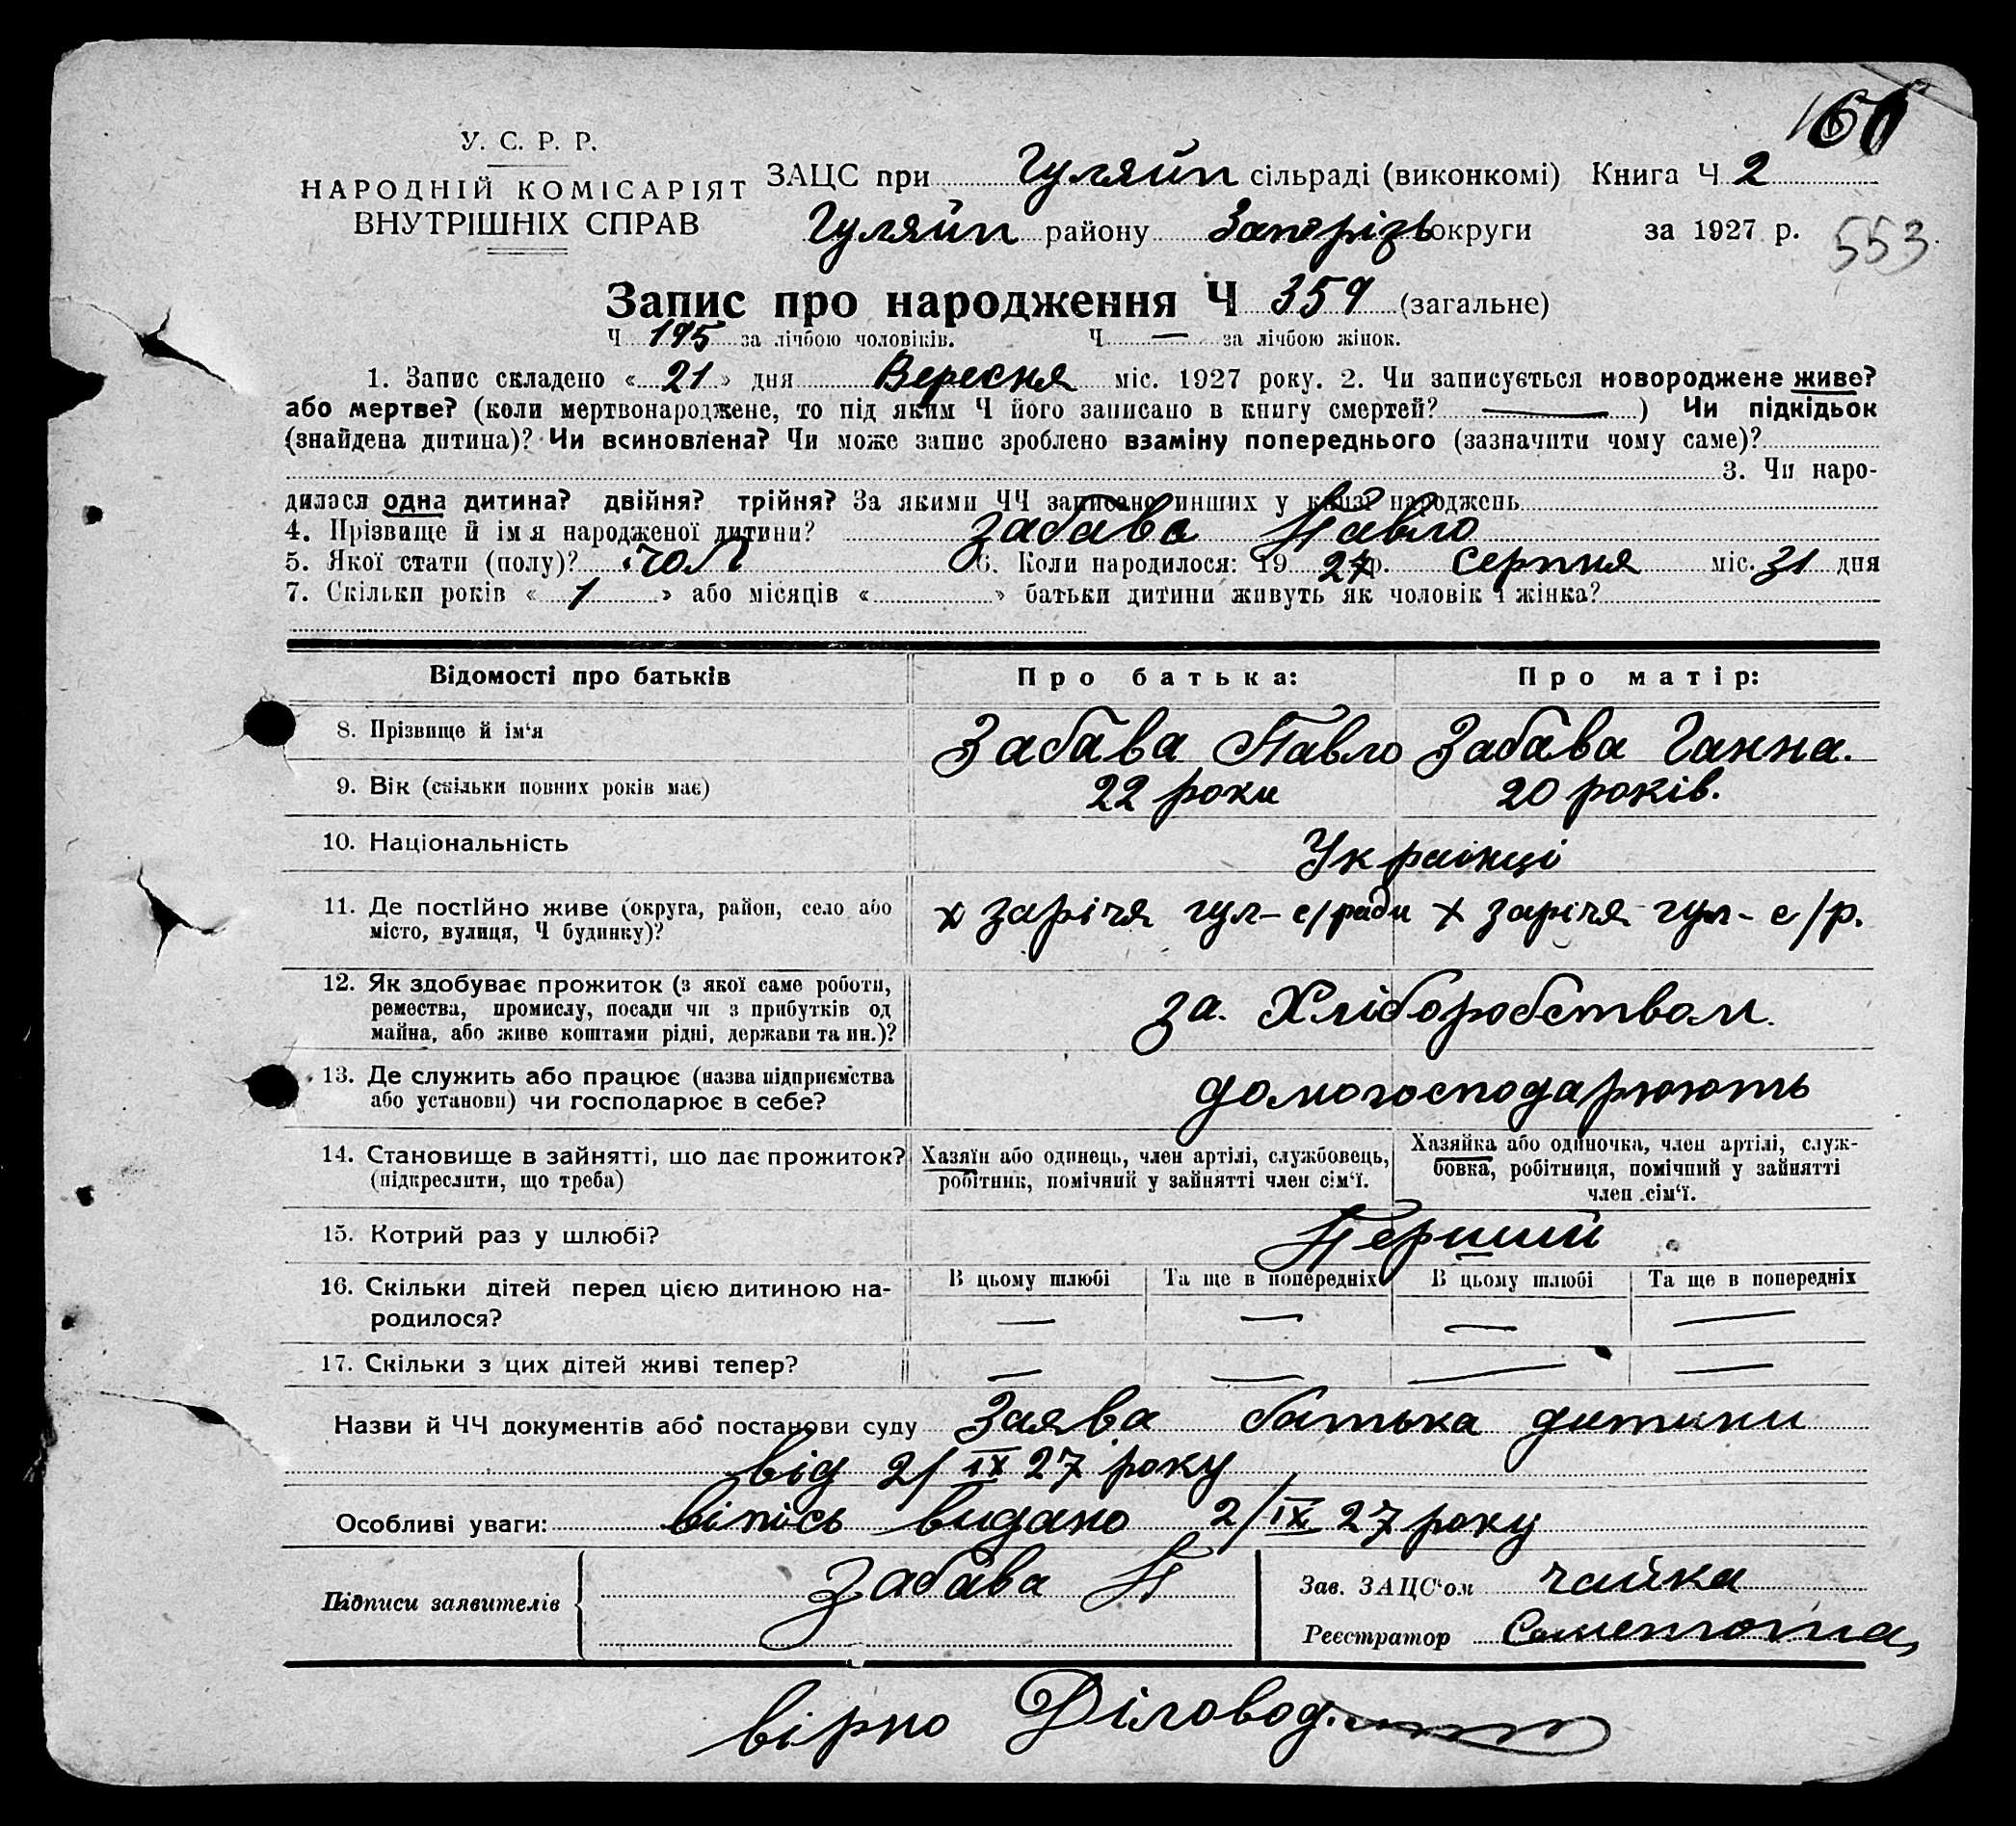 У. С. Р. Р.
НАРОДНІЙ КОМІСАРІЯТ
ВНУТРІШНІХ СПРАВ
ЗАЦС при Гуляйп сільраді (виконкомі) Книга Ч 2
Гуляйп району Запорізь округи за 1927 р. 553
Запис про народження Ч 359 (загальне)
Ч 195 за лічбою чоловіків. Ч — за лічбою жінок.
1. Запис складено «21» дня Вересня міс. 1927 року. 2. Чи записується новороджене живе?
або мертве? (коли мертвонароджене, то під яким Ч його записано в книгу смертей? —) Чи підкідьок
(знайдена дитина)? Чи всиновлена? Чи може запис зроблено взаміну попереднього (зазначити чому саме)?
3. Чи наро-
дилася одна дитина? двійня? трійня? За якими ЧЧ записано инших у книзі народжень
4. Прізвище й ім'я народженої дитини? Забава Павло
5. Якої стати (полу)? чол 6. Коли народилося: 1927 р. серпня міс. 31 дня
7. Скільки років «1» або місяців « » батьки дитини живуть як чоловік і жінка?
Відомості про батьків Про батька: Про матір:
8. Прізвище й ім'я Забава Павло Забава Ганна.
9. Вік (скільки повних років має) 22 роки 20 років.
10. Національність Українці
11. Де постійно живе (округа, район, село або
місто, вулиця, Ч будинку)? х зарічя гул-с/ради х зарічя гул-с/р.
12. Як здобуває прожиток (з якої саме роботи,
ремества, промислу, посади чи з прибутків од
майна, або живе коштами рідні, держави та ин.)? за. Хліборобством.
13. Де служить або працює (назва підприємства
або установи) чи господарює в себе? домогосподарюють
14. Становище в зайнятті, що дає прожиток?
(підкреслити, що треба)
Хазяїн або одинець, член артілі, службовець,
робітник, помічний у зайнятті член сім'ї.
Хазяйка або одиночка, член артілі, служ-
бовка, робітниця, помічний у зайнятті
член сім'ї.
15. Котрий раз у шлюбі? Перший
16. Скільки дітей перед цією дитиною на-
родилося?
В цьому шлюбі Та ще в попередніх В цьому шлюбі Та ще в попередніх
— — — —
17. Скільки з цих дітей живі тепер? — — — —
Назви й ЧЧ документів або постанови суду Заява батька дитини
від 2/IX 27 року
Особливі уваги: віпісь видано 2/IX 27 року
Підписи заявителів Забава П
Зав. ЗАЦС'ом Чайка
Реєстратор
вірно Діловод.